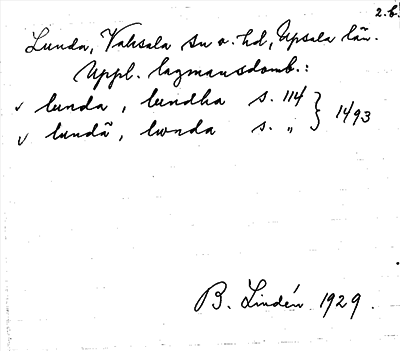 2.b.
Lunda, Vaksala sn o. hd, Upsala län.
Uppl. lagmansdomb.:
✓ lunda, lundha s. 114 } 1493
✓ lundā, lwnda s. „
B. Lindén 1929.